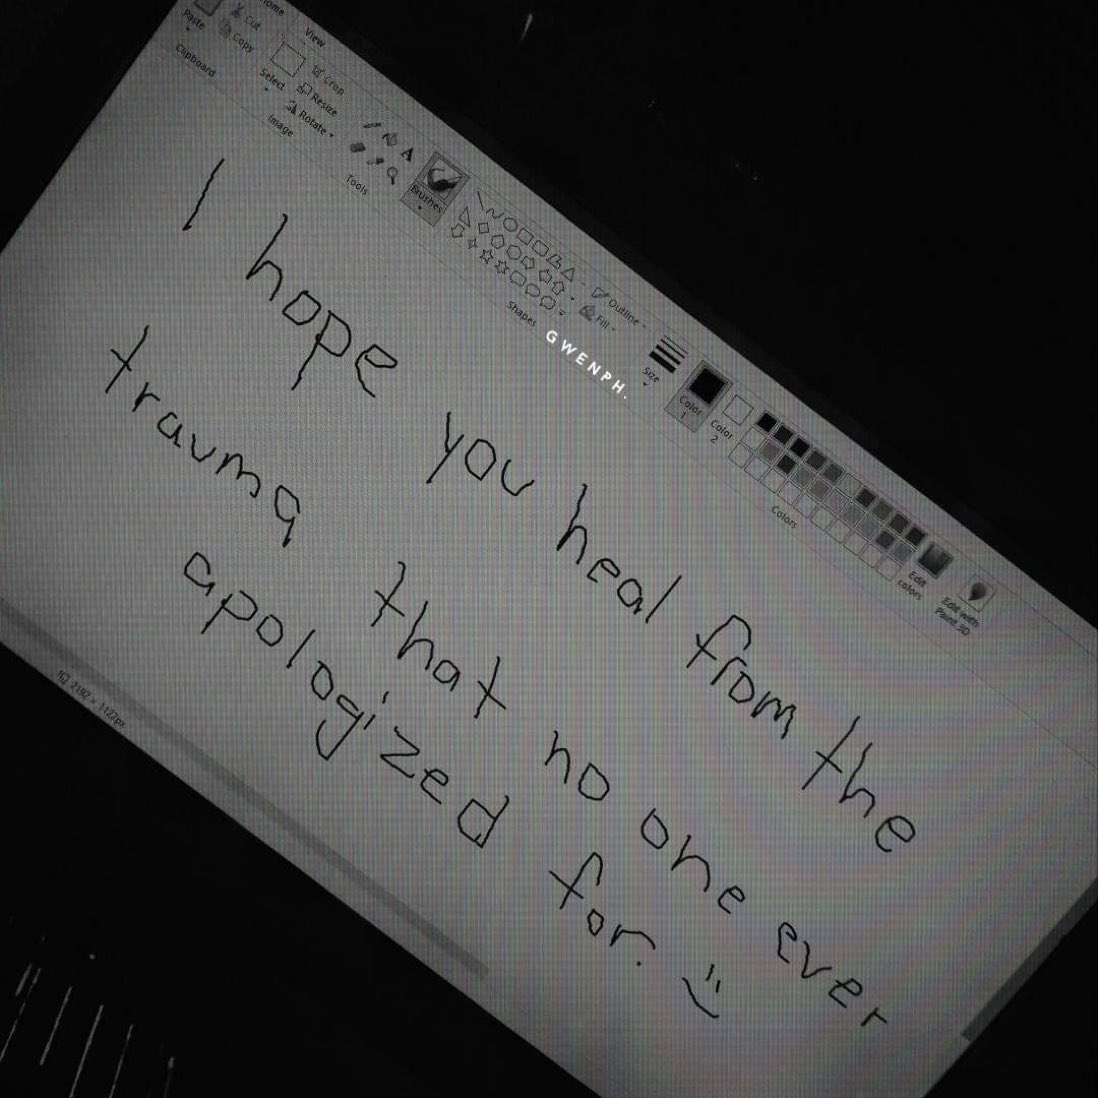 Home View
Paste Cut
Copy
Clipboard
Select Crop
Resize
Rotate
Image
Tools
Brushes
Shapes
Outline
Fill
Size
Color 1
Color 2
Colors
Edit colors
Edit with Paint 3D
GWENPH.
I hope you heal from the
trauma that no one ever
apologized for. :)
2192 × 1122px